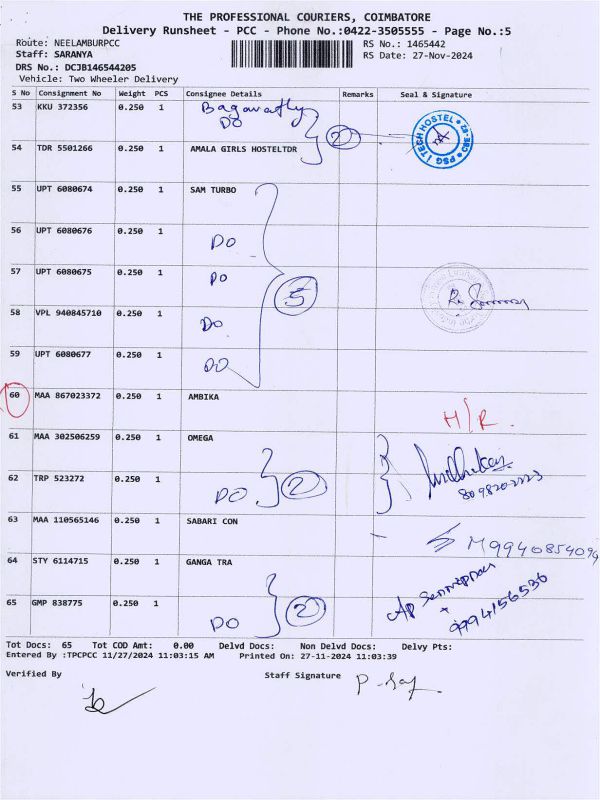 THE PROFESSIONAL COURIERS, COIMBATORE
Delivery Runsheet - PCC - Phone No.:0422-3505555 - Page No.:5
Route: NEELAMBURPCC RS No.: 1465442
Staff: SARANYA RS Date: 27-Nov-2024
DRS No.: DCJB146544205
Vehicle: Two Wheeler Delivery
S No Consignment No Weight PCS Consignee Details Remarks Seal & Signature
53 KKU 372356 0.250 1 DO
PSG iTECH HOSTEL
54 TDR 5501266 0.250 1 AMALA GIRLS HOSTELTDR 2
55 UPT 6080674 0.250 1 SAM TURBO
56 UPT 6080676 0.250 1 DO
57 UPT 6080675 0.250 1 DO 5
58 VPL 940845710 0.250 1 DO
59 UPT 6080677 0.250 1 DO
60 MAA 867023372 0.250 1 AMBIKA H/R.
61 MAA 302506259 0.250 1 OMEGA
62 TRP 523272 0.250 1 DO 2
63 MAA 110565146 0.250 1 SABARI CON
64 STY 6114715 0.250 1 GANGA TRA
65 GMP 838775 0.250 1 DO 2 9994156536
Tot Docs: 65 Tot COD Amt: 0.00 Delvd Docs: Non Delvd Docs: Delvy Pts:
Entered By :TPCPCC 11/27/2024 11:03:15 AM Printed On: 27-11-2024 11:03:39
Verified By Staff Signature